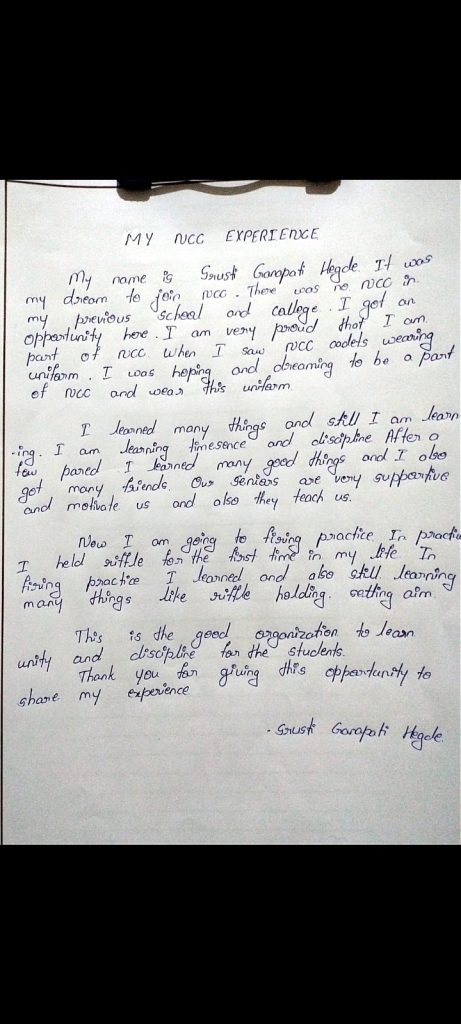 MY NCC EXPERIENCE
My name is Srusti Ganapati Hegde. It was
my dream to join NCC. There was no NCC in
my previous school and college. I got an
opportunity here. I am very proud that I am
part of NCC. When I saw NCC cadets wearing
uniform. I was hoping and dreaming to be a part
of NCC and wear this uniform.
I learned many things and still I am learn
-ing. I am learning timesence and discipline After a
few pared I learned many good things and I also
got many friends. Our seniors are very supportive
and motivate us and also they teach us.
Now I am going to firing practice. In practice
I held riffle for the first time in my life In
firing practice I learned and also still learning
many things like riffle holding. setting aim.
This is the good organization to learn
unity and discipline for the students.
Thank you for giving this opportunity to
share my experience
- Srusti Ganapati Hegde.